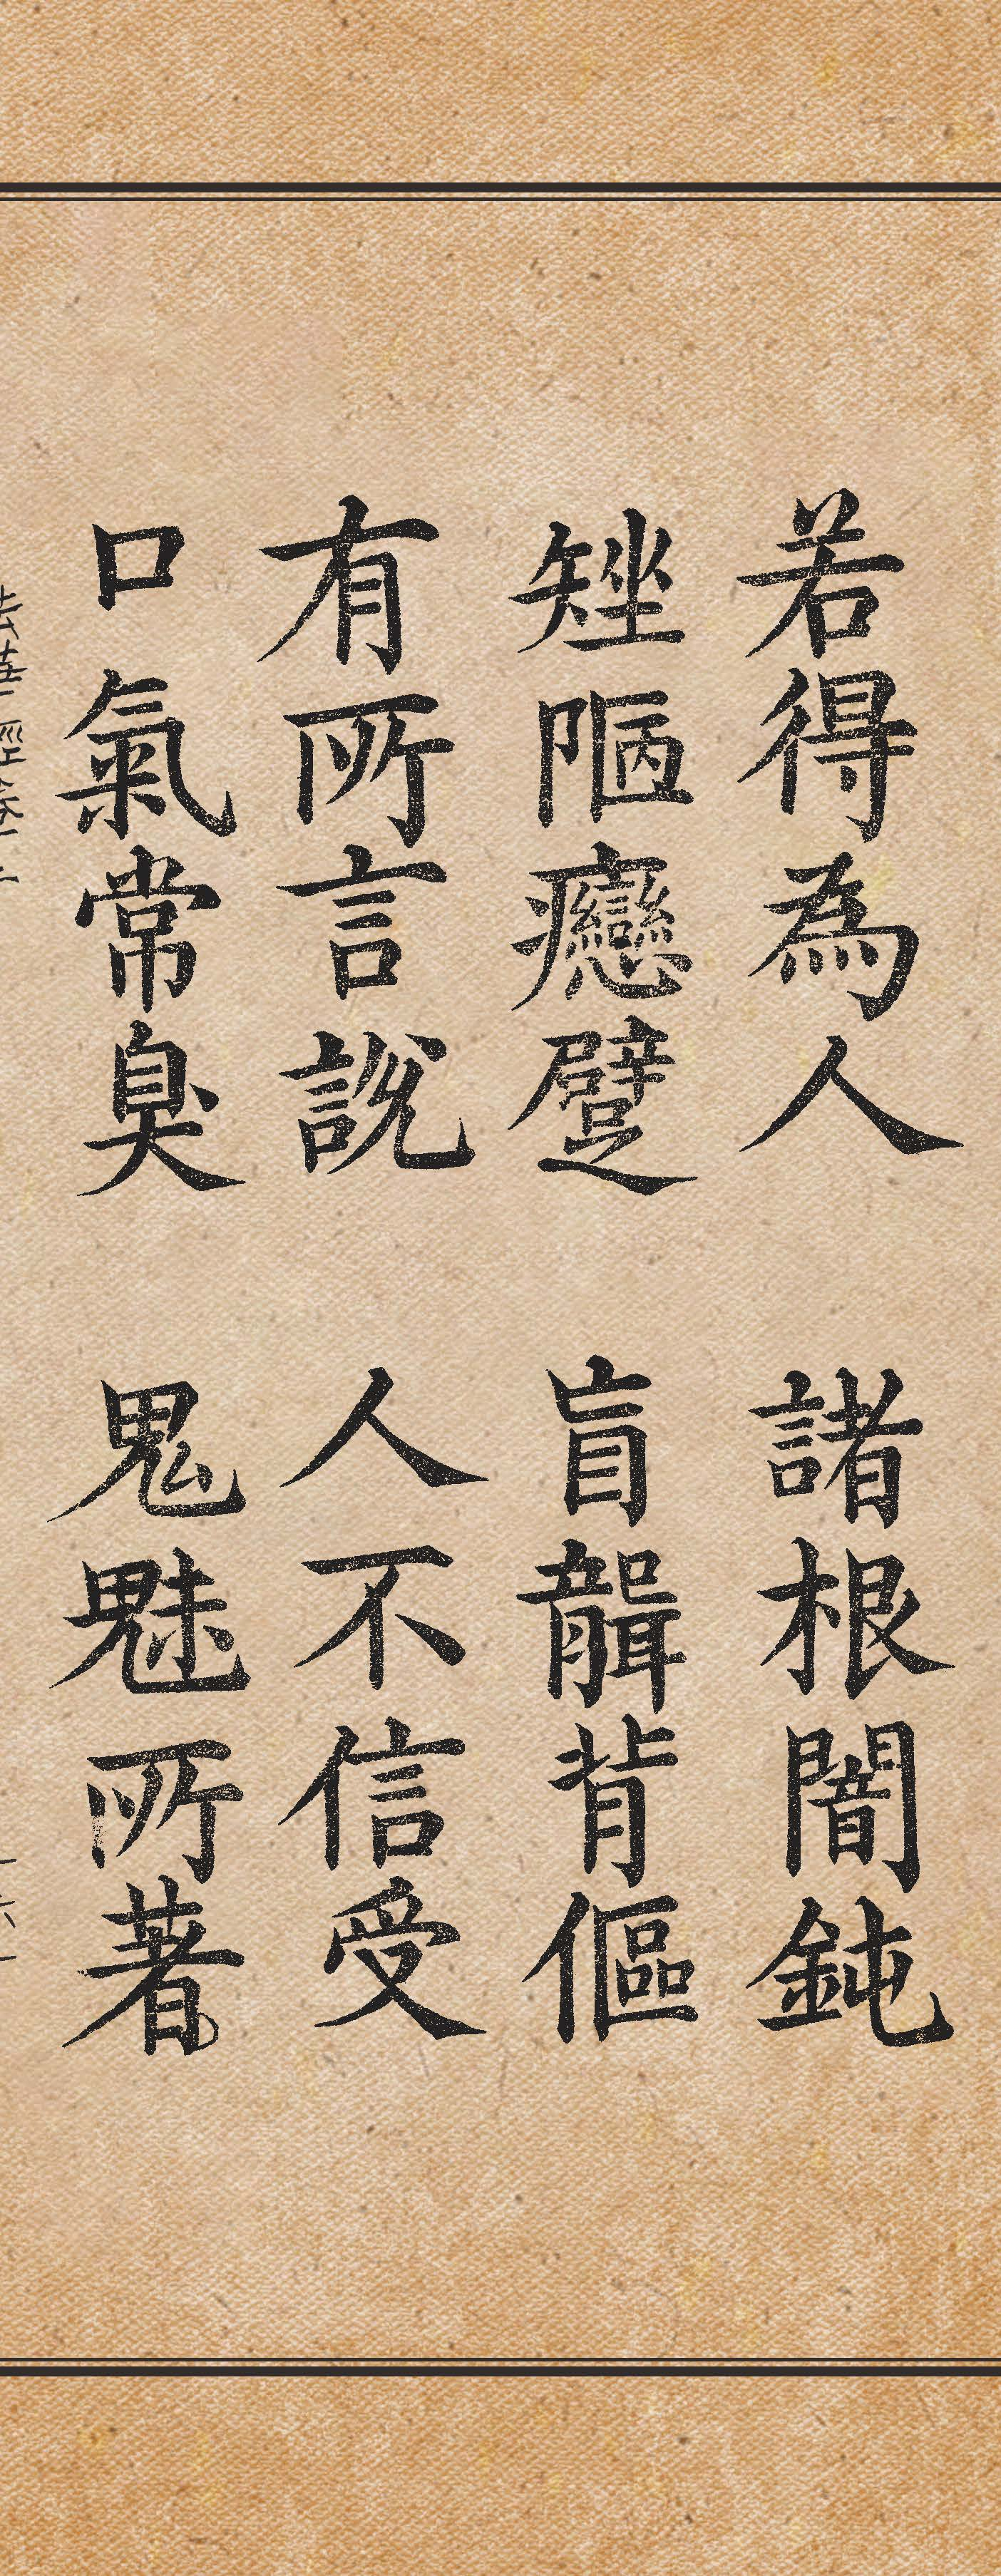 若得為人　諸根闇鈍
矬陋癵躄　盲聾背傴
有所言說　人不信受
口氣常臭　鬼魅所著